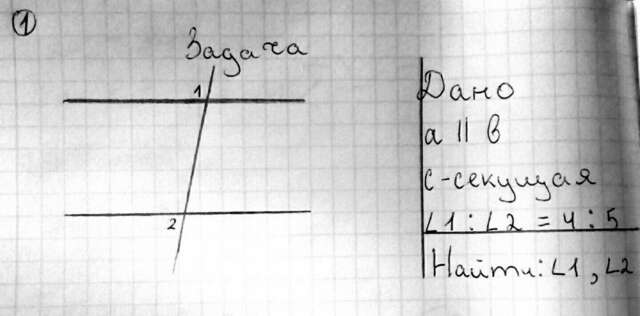 1
Задача
1
2
Дано
а || в
с-секущая
∠1 : ∠2 = 4 : 5
Найти: ∠1, ∠2